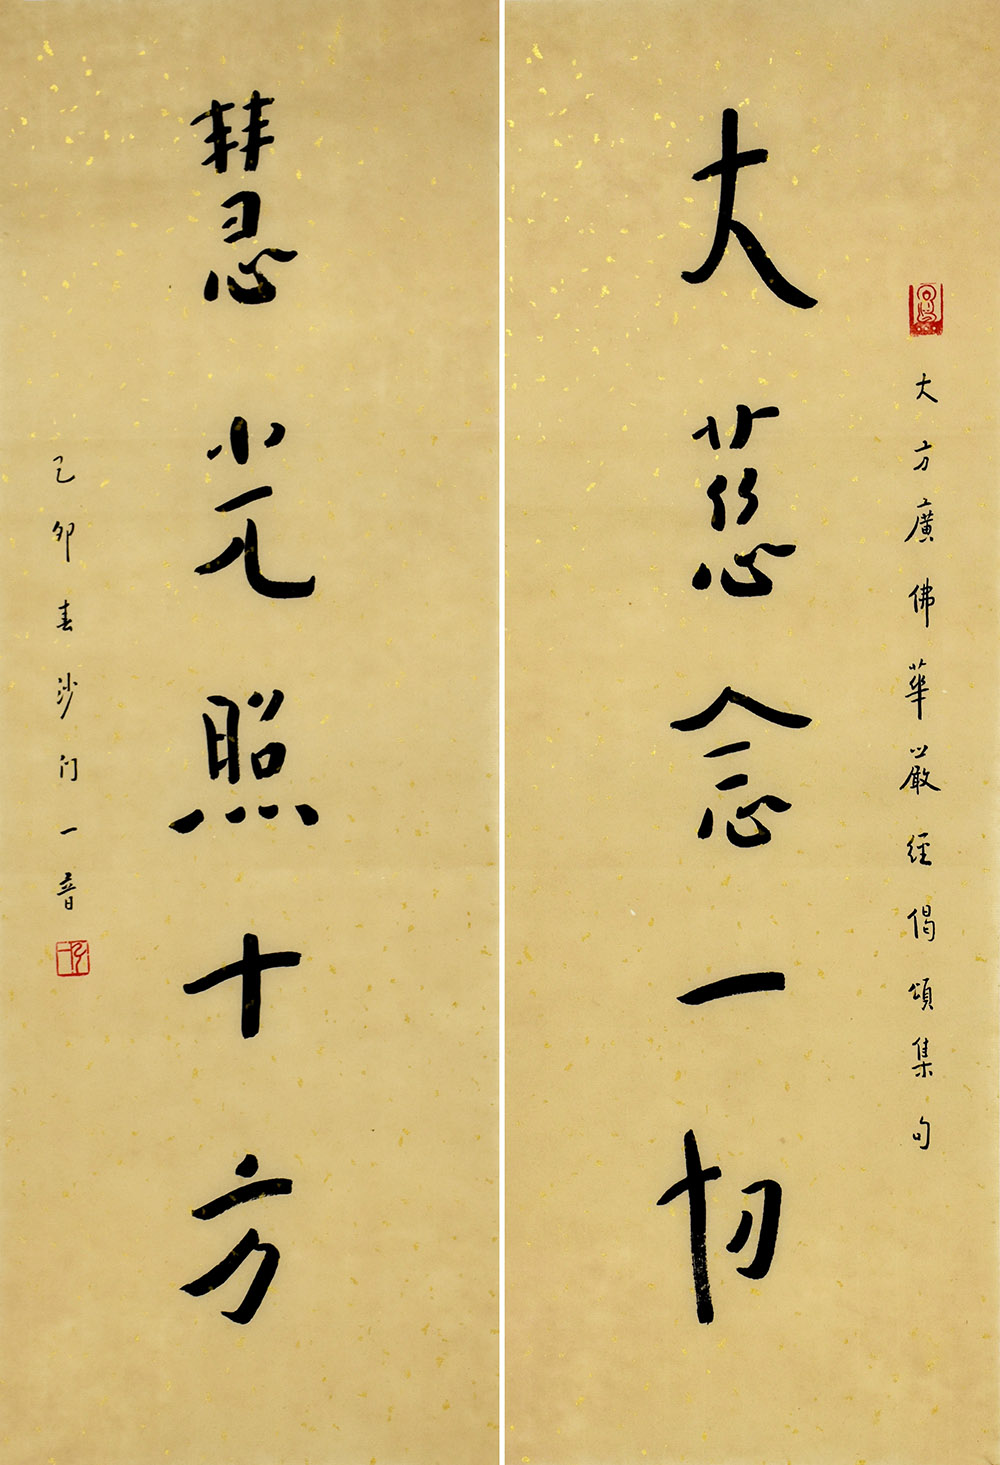 大方廣佛華嚴經偈頌集句
大慈念一切
慧光照十方
己卯春沙门一音